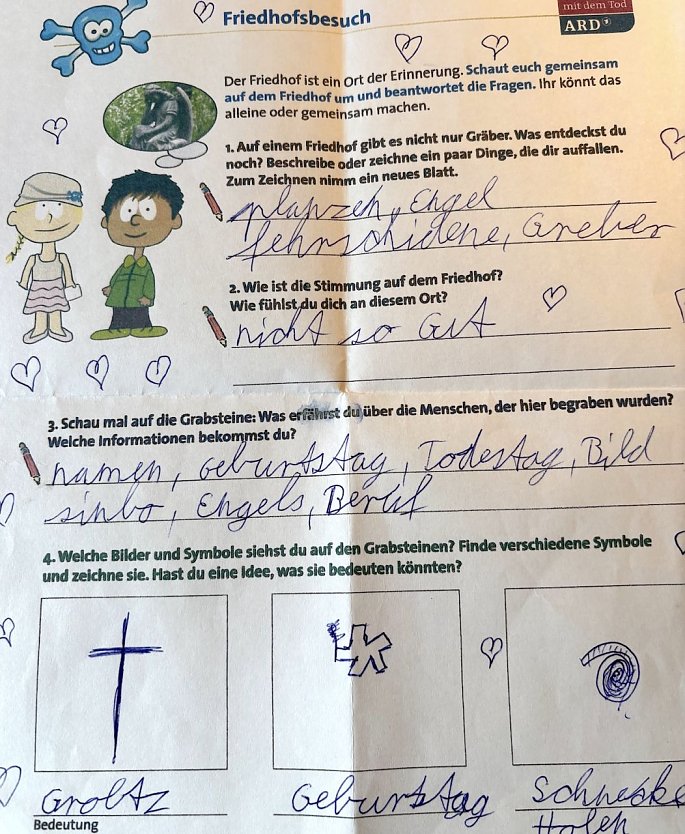 Friedhofsbesuch
mit dem Tod
ARD
Der Friedhof ist ein Ort der Erinnerung. Schaut euch gemeinsam
auf dem Friedhof um und beantwortet die Fragen. Ihr könnt das
alleine oder gemeinsam machen.
1. Auf einem Friedhof gibt es nicht nur Gräber. Was entdeckst du
noch? Beschreibe oder zeichne ein paar Dinge, die dir auffallen.
Zum Zeichnen nimm ein neues Blatt.
Engel
fehrschidene, Greber
2. Wie ist die Stimmung auf dem Friedhof?
Wie fühlst du dich an diesem Ort?
nicht so Gut
3. Schau mal auf die Grabsteine: Was erfährst du über die Menschen, der hier begraben wurden?
Welche Informationen bekommst du?
namen, Geburtstag, Todestag, Bild
sinbo, Engels, Beruf
4. Welche Bilder und Symbole siehst du auf den Grabsteinen? Finde verschiedene Symbole
und zeichne sie. Hast du eine Idee, was sie bedeuten könnten?
Geburtstag
Bedeutung